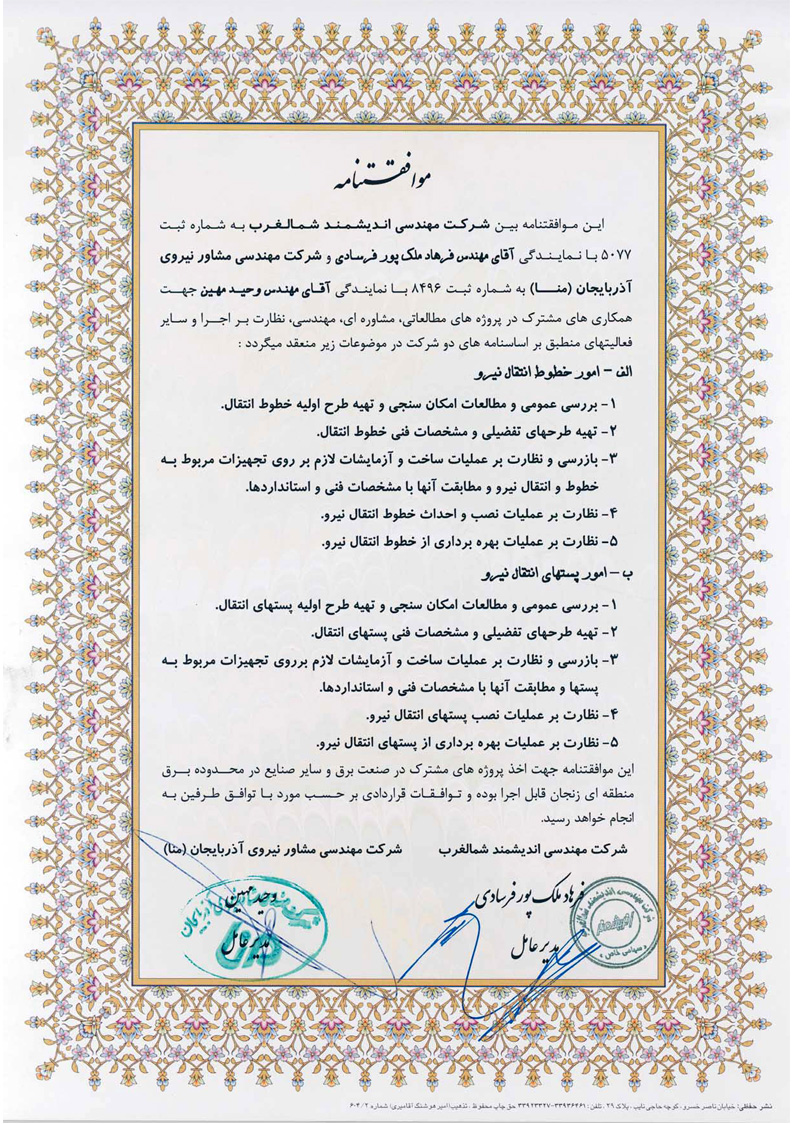 موافقتنامه
این موافقتنامه بین شرکت مهندسی اندیشمند شمالغرب به شماره ثبت
۵۰۷۷ با نمایندگی آقای مهندس فرهاد ملک پور فرسادی و شرکت مهندسی مشاور نیروی
آذربایجان (منا) به شماره ثبت ۸۴۹۶ با نمایندگی آقای مهندس وحید مهین جهت
همکاری های مشترک در پروژه های مطالعاتی، مشاوره ای، مهندسی، نظارت بر اجرا و سایر
فعالیتهای منطبق بر اساسنامه های دو شرکت در موضوعات زیر منعقد میگردد :
الف – امور خطوط انتقال نیرو
۱- بررسی عمومی و مطالعات امکان سنجی و تهیه طرح اولیه خطوط انتقال.
۲- تهیه طرحهای تفضیلی و مشخصات فنی خطوط انتقال.
۳- بازرسی و نظارت بر عملیات ساخت و آزمایشات لازم بر روی تجهیزات مربوط به
خطوط و انتقال نیرو و مطابقت آنها با مشخصات فنی و استانداردها.
۴- نظارت بر عملیات نصب و احداث خطوط انتقال نیرو.
۵- نظارت بر عملیات بهره برداری از خطوط انتقال نیرو.
ب – امور پستهای انتقال نیرو
۱- بررسی عمومی و مطالعات امکان سنجی و تهیه طرح اولیه پستهای انتقال.
۲- تهیه طرحهای تفضیلی و مشخصات فنی پستهای انتقال.
۳- بازرسی و نظارت بر عملیات ساخت و آزمایشات لازم برروی تجهیزات مربوط به
پستها و مطابقت آنها با مشخصات فنی و استانداردها.
۴- نظارت بر عملیات نصب پستهای انتقال نیرو.
۵- نظارت بر عملیات بهره برداری از پستهای انتقال نیرو.
این موافقتنامه جهت اخذ پروژه های مشترک در صنعت برق و سایر صنایع در محدوده برق
منطقه ای زنجان قابل اجرا بوده و توافقات قراردادی بر حسب مورد با توافق طرفین به
انجام خواهد رسید.
شرکت مهندسی اندیشمند شمالغرب شرکت مهندسی مشاور نیروی آذربایجان (منا)
فرهاد ملک پور فرسادی وحید مهین
مدیر عامل مدیر عامل
شرکت مهندسی اندیشمند شمالغرب
(سهامی خاص)
نشر حفظی: خیابان ناصر خسرو، کوچه حاجی نایب، پلاک ۲۹، تلفن: ۳۳۹۳۶۴۶۱-۳۳۹۲۳۳۲۷ حق چاپ محفوظ، تذهیب امیر هوشنگ آقامیری: شماره ۶۰۴/۲